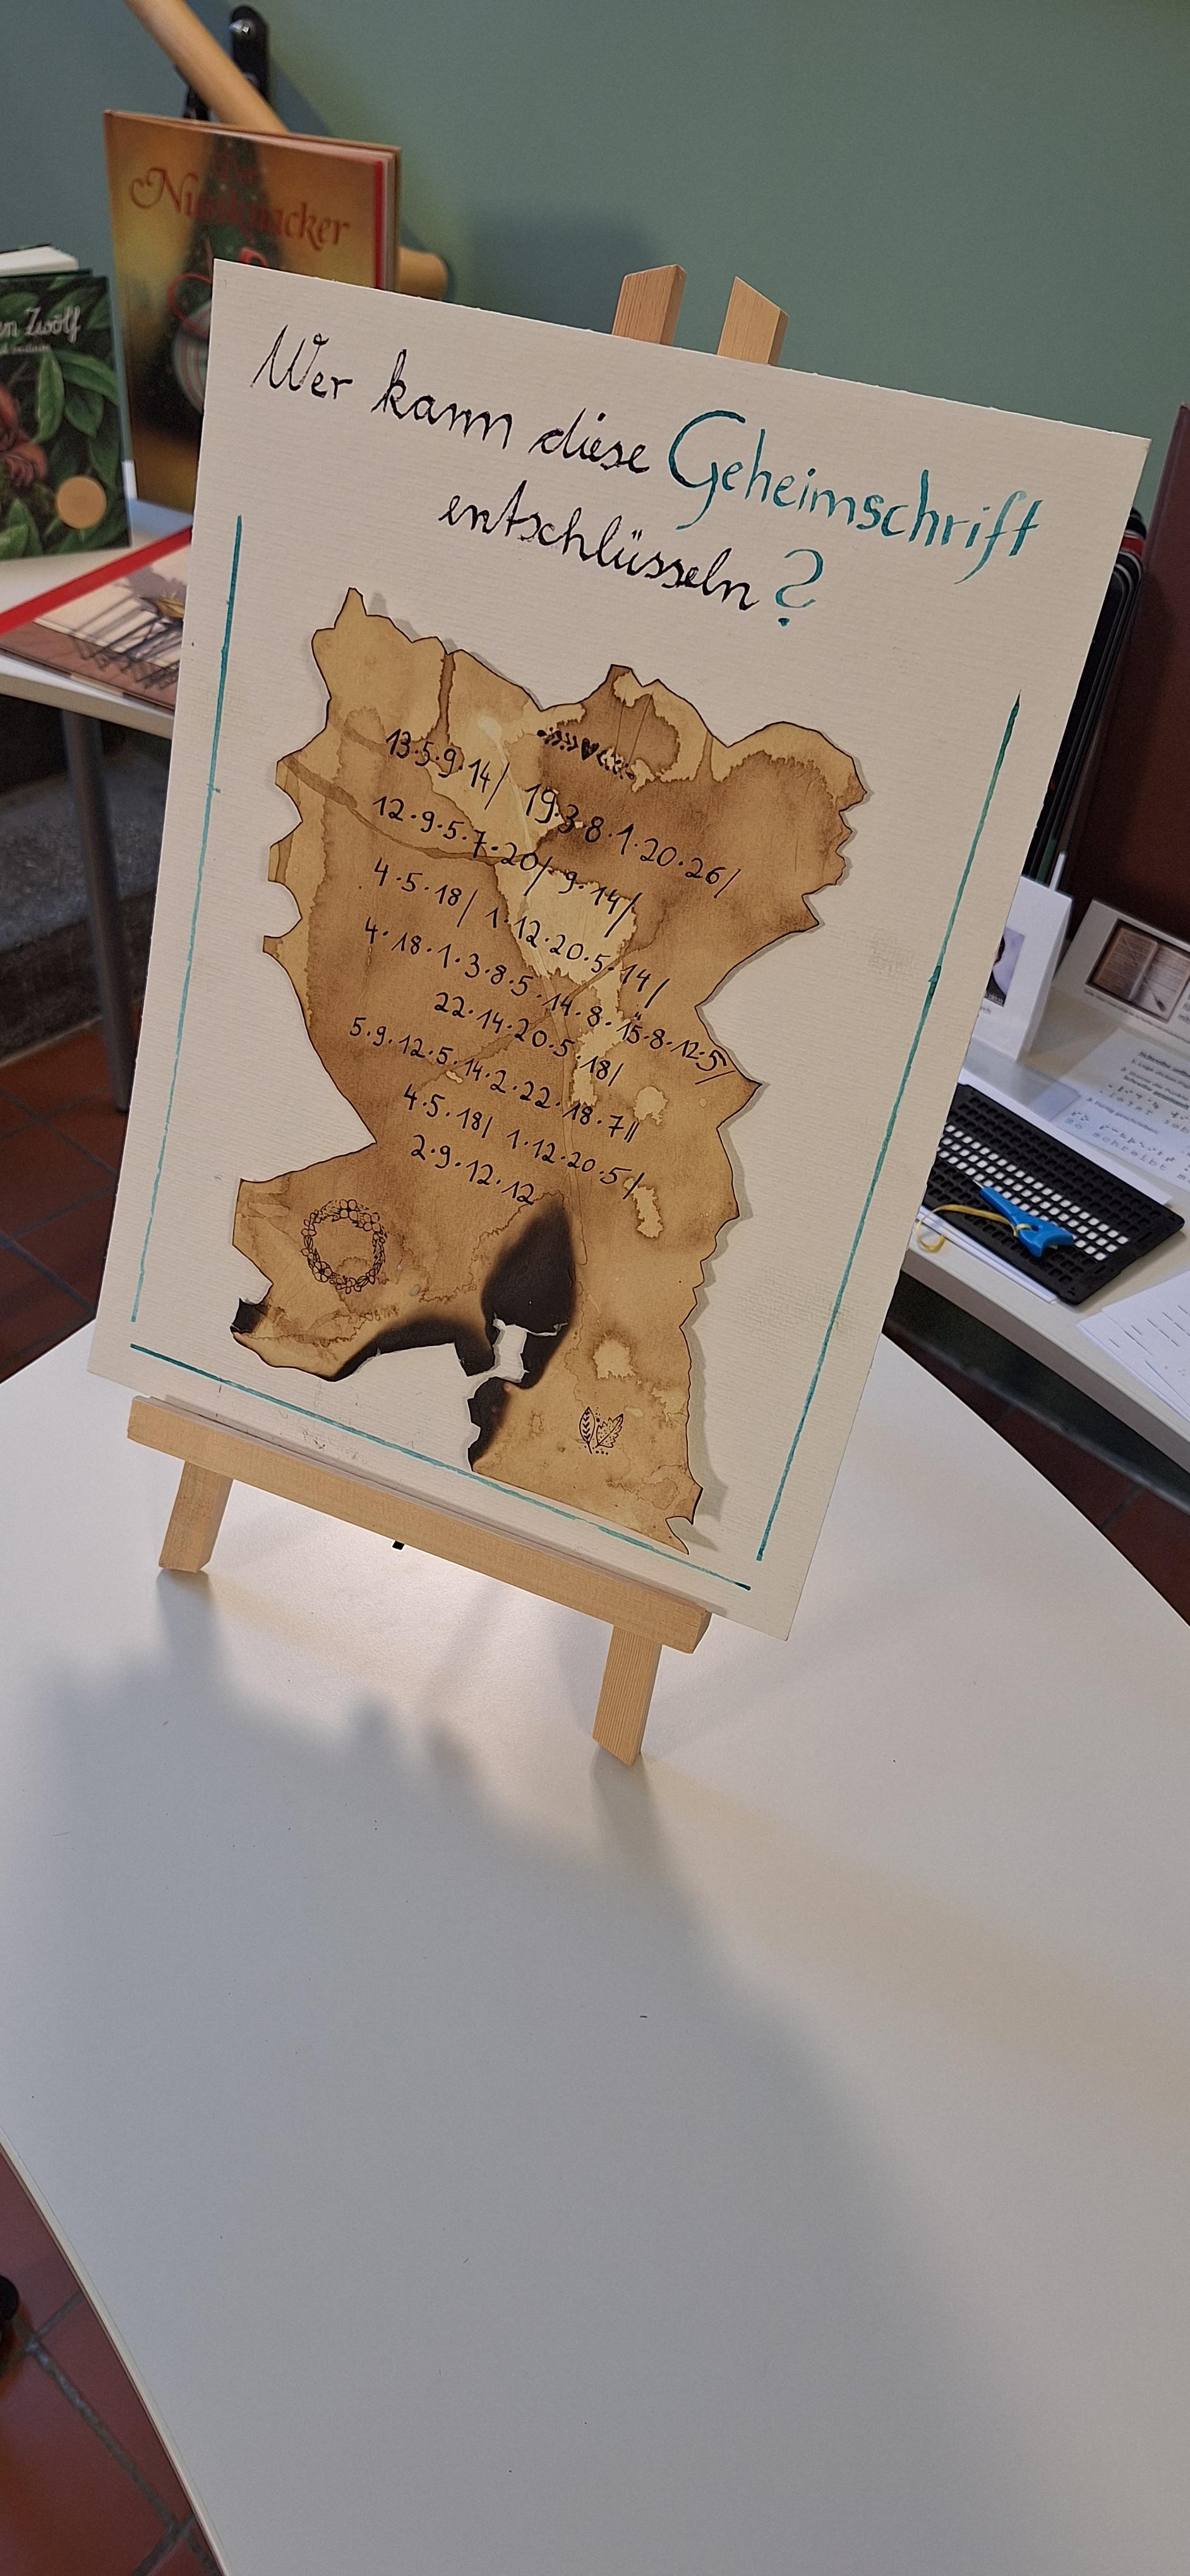 Der
Nussknacker
en Zwölf
Wer kann diese Geheimschrift
entschlüsseln?
13·5·9·14/ 19·3·8·1·20·26/
12·9·5·7·20/ 9·14/
4·5·18/ 1·12·20·5·14/
4·18·1·3·8·5·14·8·1̈5·8·12·5/
22·14·20·5·18/
5·9·12·5·14·2·22·18·7//
4·5·18/ 1·12·20·5/
2·9·12·12